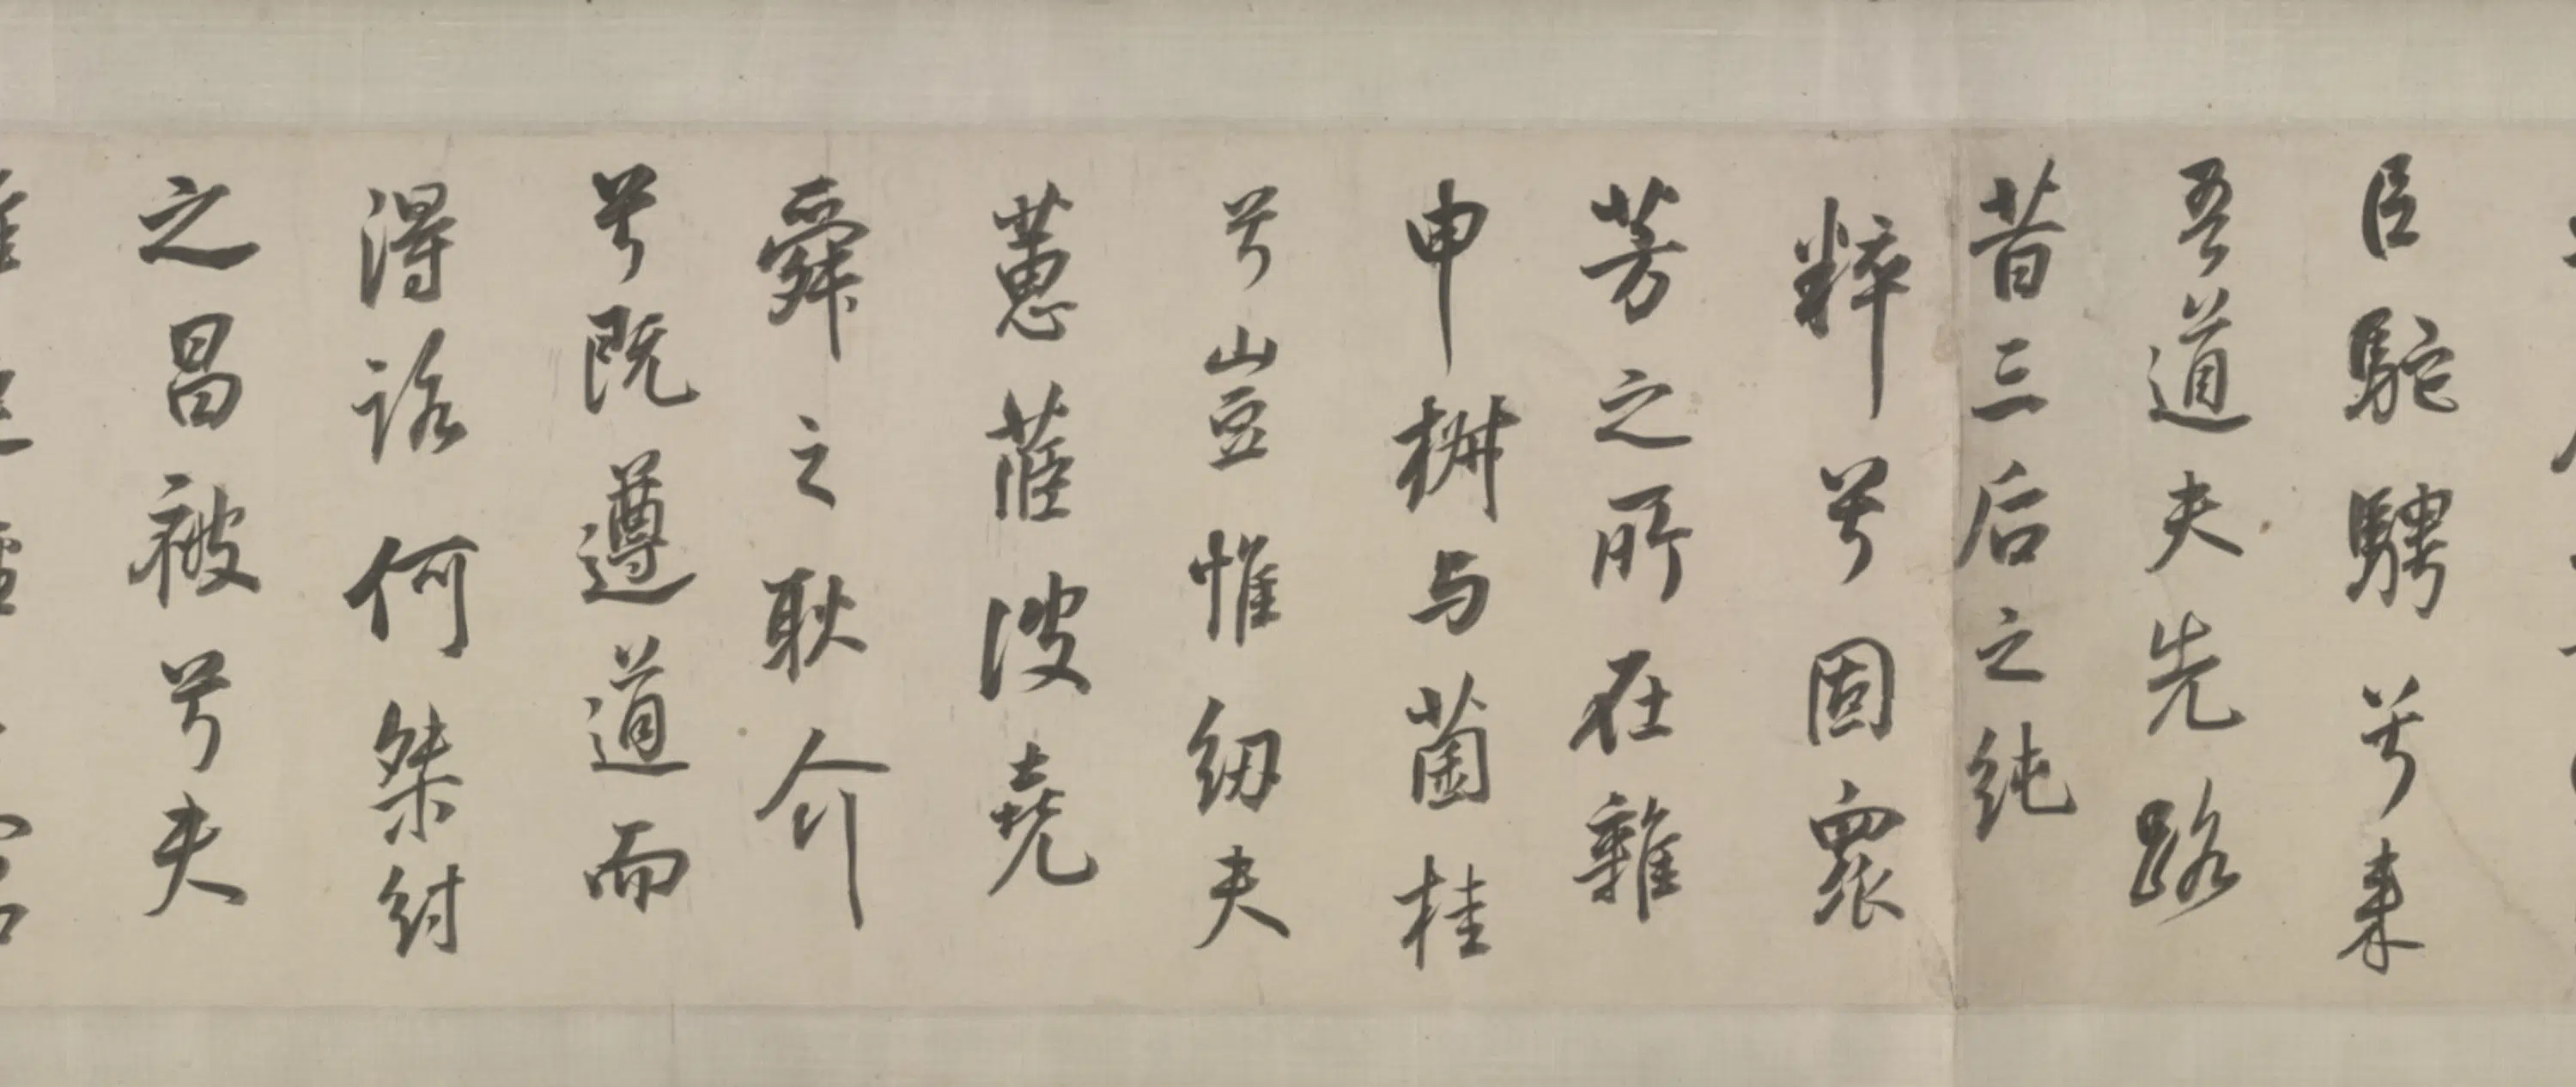 㠯駝騁兮来
吾道夫先路
昔三后之純
粹兮固衆
芳之所在雜
申椒与菌桂
兮豈惟紉夫
蕙茝彼堯
舜之耿介
兮既遵道而
得路何桀紂
之昌被兮夫